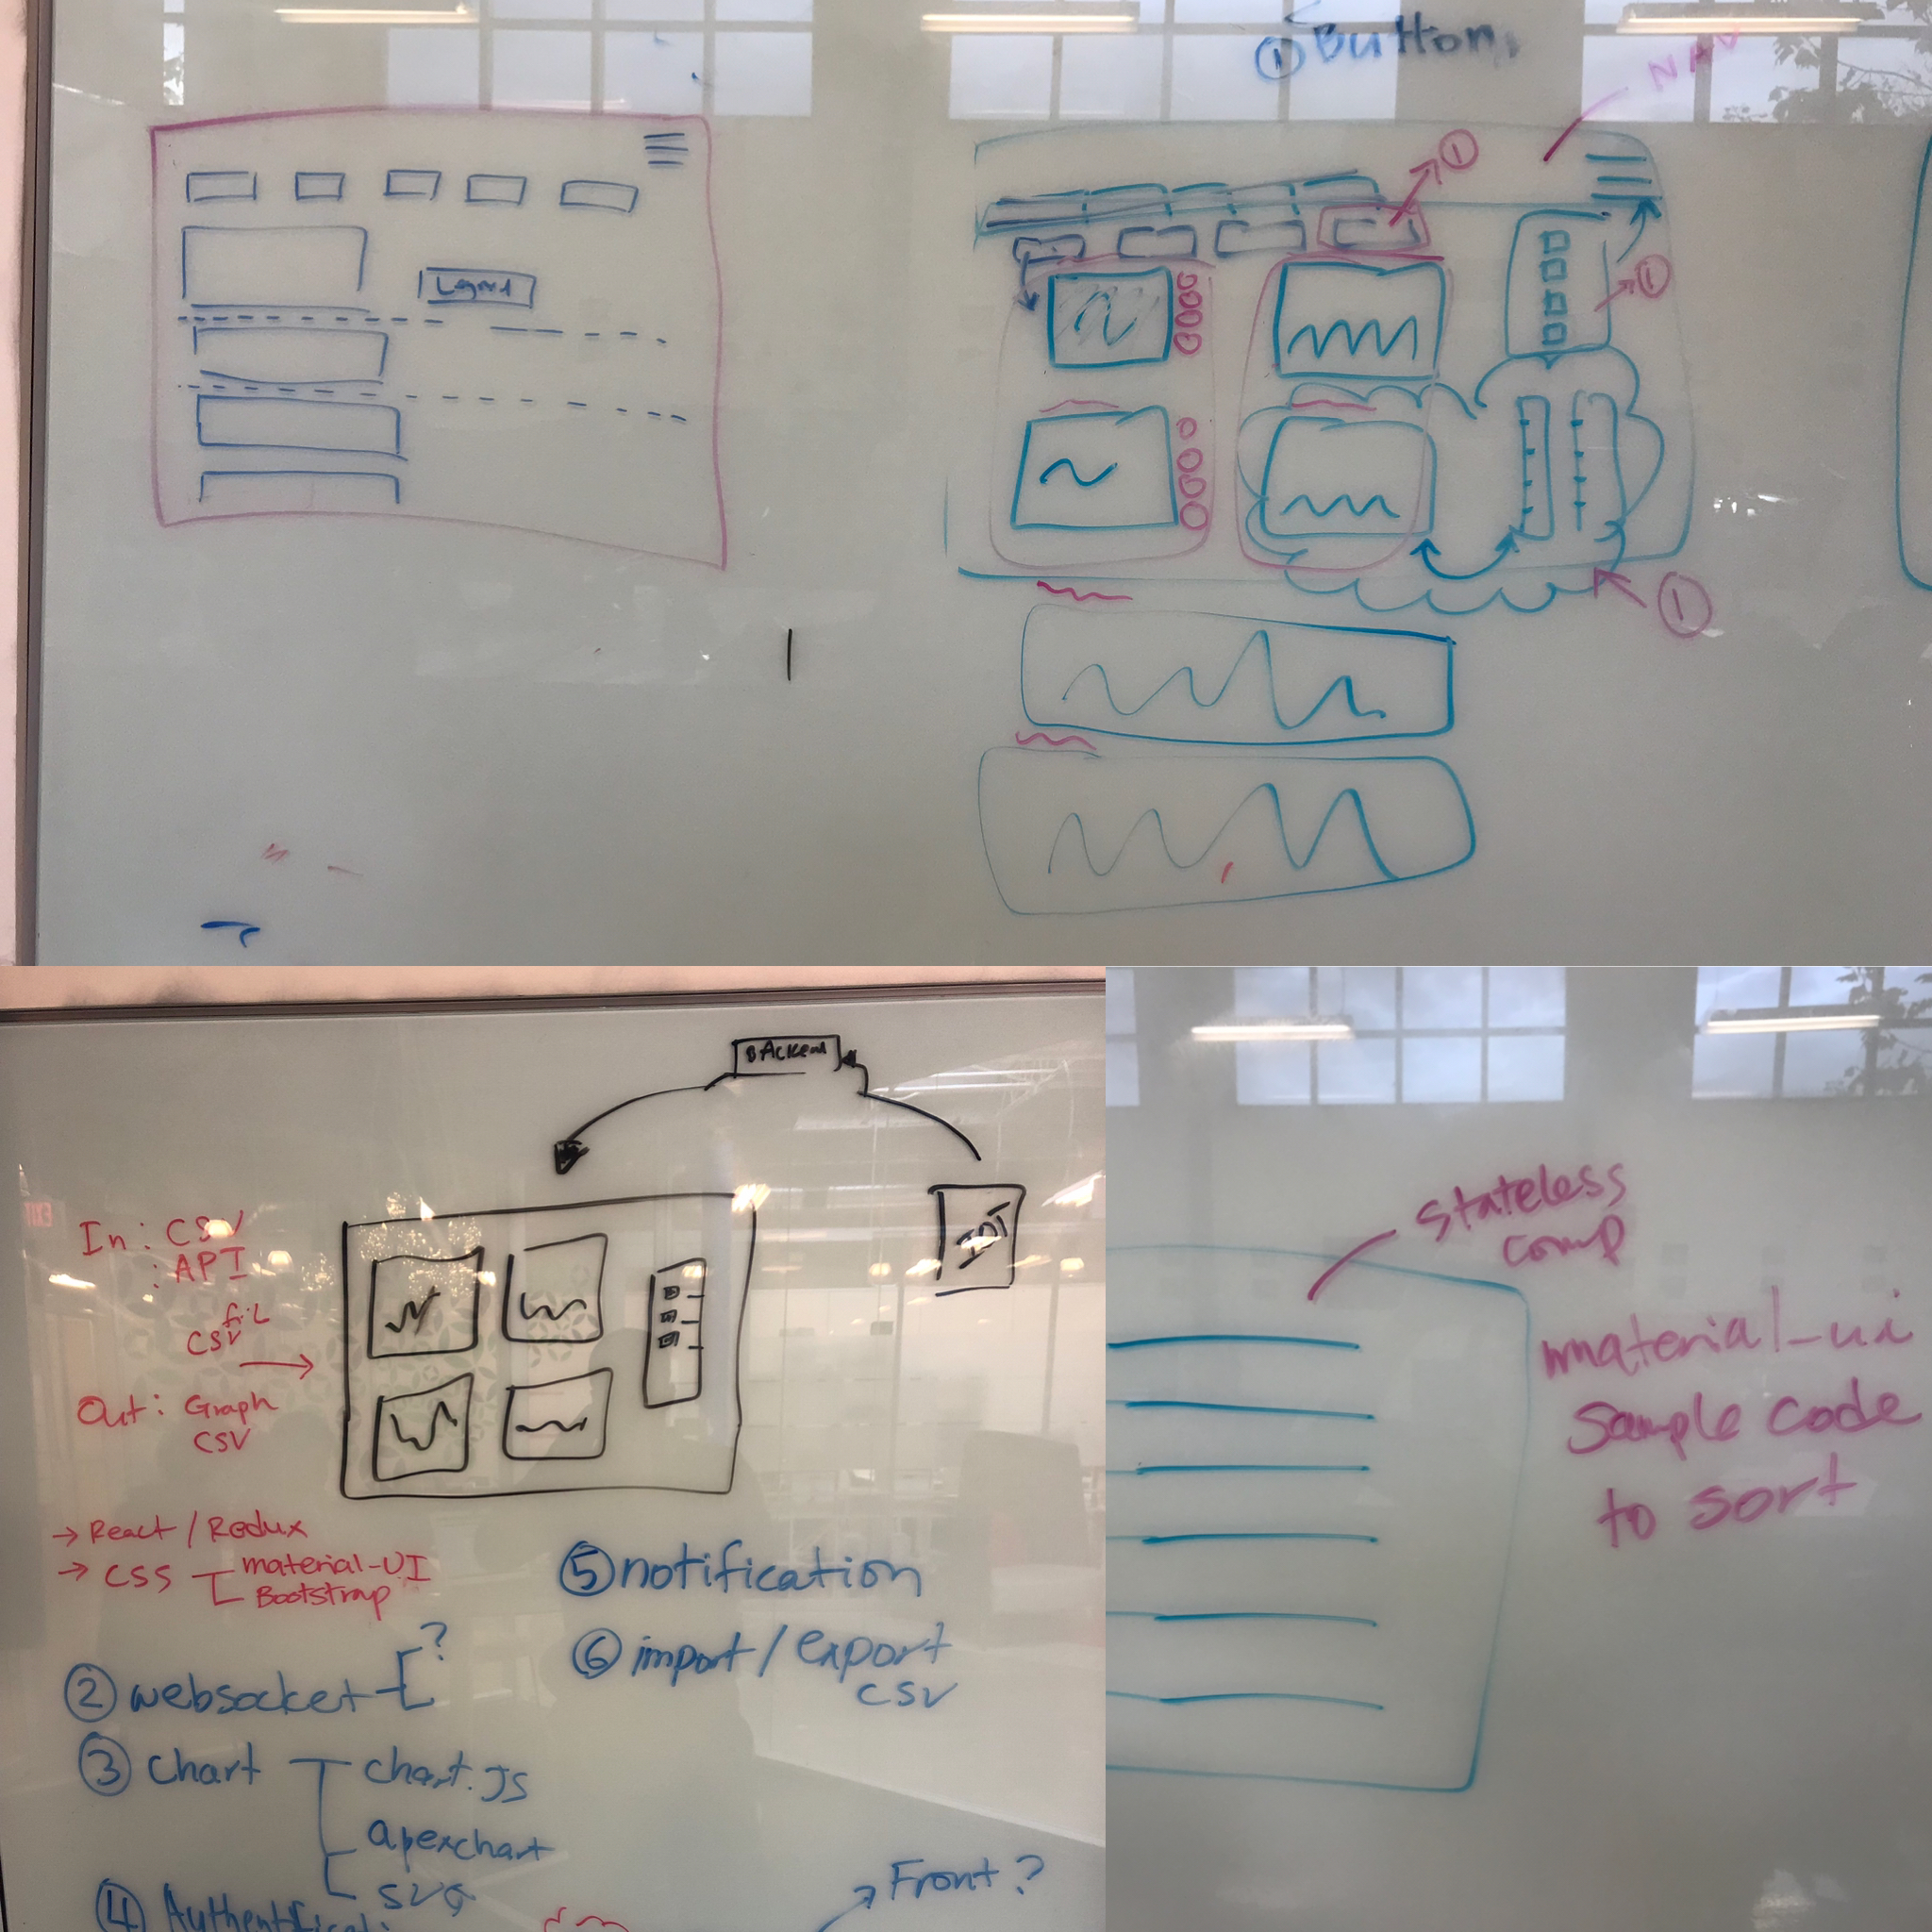 ① Button
NAV
①
①
①
Legend
BAckend
IOT
In: CSV
: API
fiL
CSV
Out: Graph
CSV
→ React / Redux
→ CSS
material-UI
Bootstrap
② websocket
?
③ chart
chart.JS
apexchart
SVG
④
⑤ notification
⑥ import / export
CSV
Front ?
Stateless
comp
material-ui
Sample code
to sort